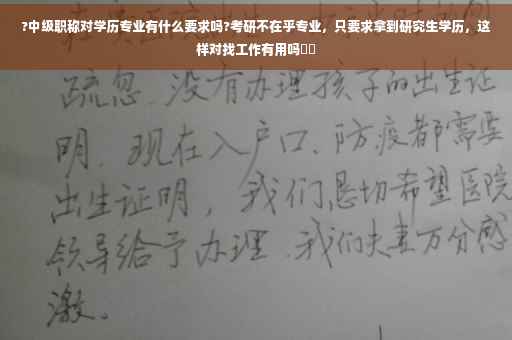 ?中级职称对学历专业有什么要求吗?考研不在乎专业，只要求拿到研究生学历，这
样对找工作有用吗
疏忽、没有办理孩子的出生证
明．现在入户口、防疫都需要
出生证明，我们恳切希望医院
领导给予办理．我们夫妻万分感
激。